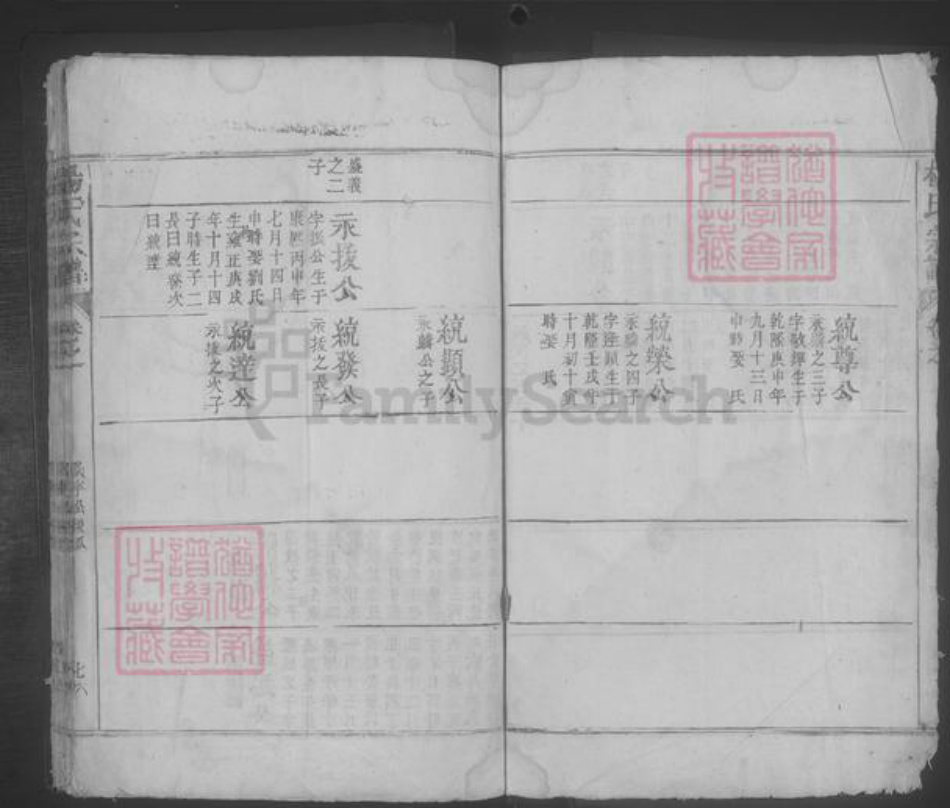 統尊公
之三子
生于
乾隆庚申年
九月十三日
申時娶 氏
統榮公
之四子
生于
乾隆壬戌年
十月初十寅
時娶 氏
統顯公
公之子
盛義
之二
子
永拔公
公生子
康熙丙申年
七月十四日
申時娶劉氏
生雍正庚戌
年十月十四
子時生子二
長曰統發次
曰統達
統發公
永拔之長子
統達公
永拔之次子
楊氏宗譜
FamilySearch
猶他家
譜學會
收藏
猶他家
譜學會
收藏